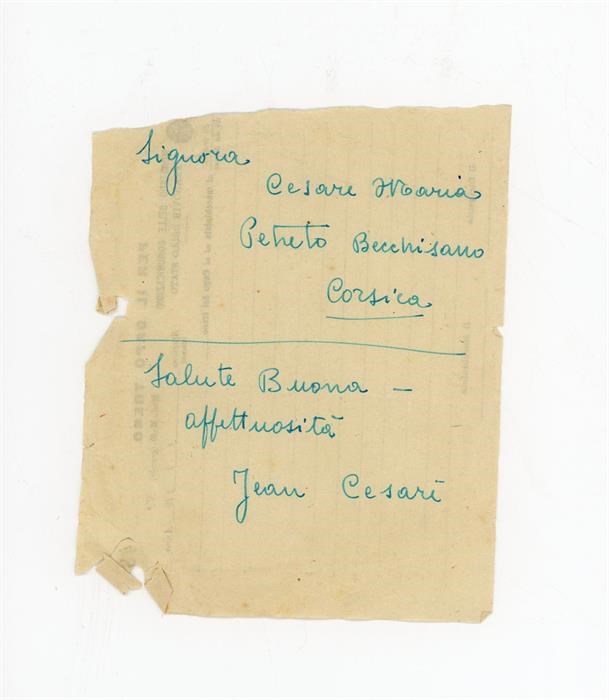 Signora
Cesare Maria
Petreto Becchisano
Corsica
Salute Buona —
affettuosità
Jean Cesari